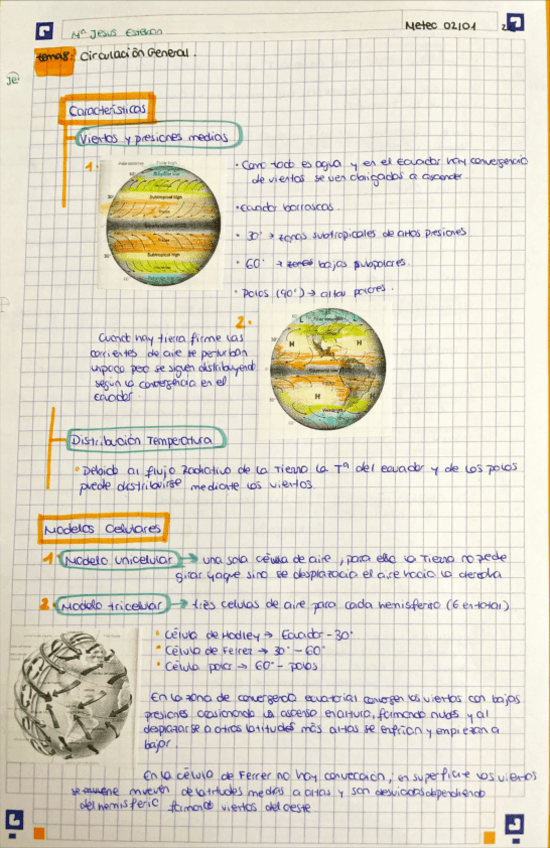 Mª Jesus Esteban
Meteo 02/01
tema8: Circulación General.
Características
Vientos y presiones medias
1.
Subtropical High
Subtropical High
• Como todo es agua y en el Ecuador hay convergencia
de vientos se ven obligados a ascender
• Ecuador borrascas
• 30° → zonas subtropicales de altas presiones
• 60° → bajas subpolares.
• Polos (90°) → altas polares.
2.
H
H
H
H
L
Cuando hay tierra firme las
corrientes de aire se perturban
un poco pero se siguen distribuyendo
según la convergencia en el
ecuador
Distribución Temperatura
• Debido al flujo radiativo de la Tierra la Tª del ecuador y de los polos
puede distribuirse mediante los vientos
Modelos Celulares
1. Modelo unicelular → una sola célula de aire, para ello la Tierra no pede
girar yaque sino se desplazacia el aire hacia la derecha.
2. Modelo tricelular → tres celulas de aire para cada hemisferio (6 en total)
• Célula de Hadley → Ecuador - 30°
• Célula de Ferrer → 30° - 60°
• Célula polar → 60° - polos
En la zona de convergencia ecuatorial convergen los vientos con bajas
presiones ocasionando un ascenso en altura, formando nubes y al
desplazarse a otras latitudes más altas se enfrían y empiezan a
bajar.
En la célula de Ferrer no hay convección, en superficie los vientos
se mueven de latitudes medias a altas y son desviados dependiendo
del hemisferio formando vientos del oeste